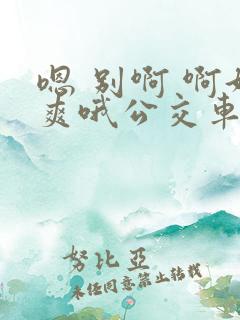 嗯 别啊 啊好
爽哦公交车
努比亚
未经同意禁止转载